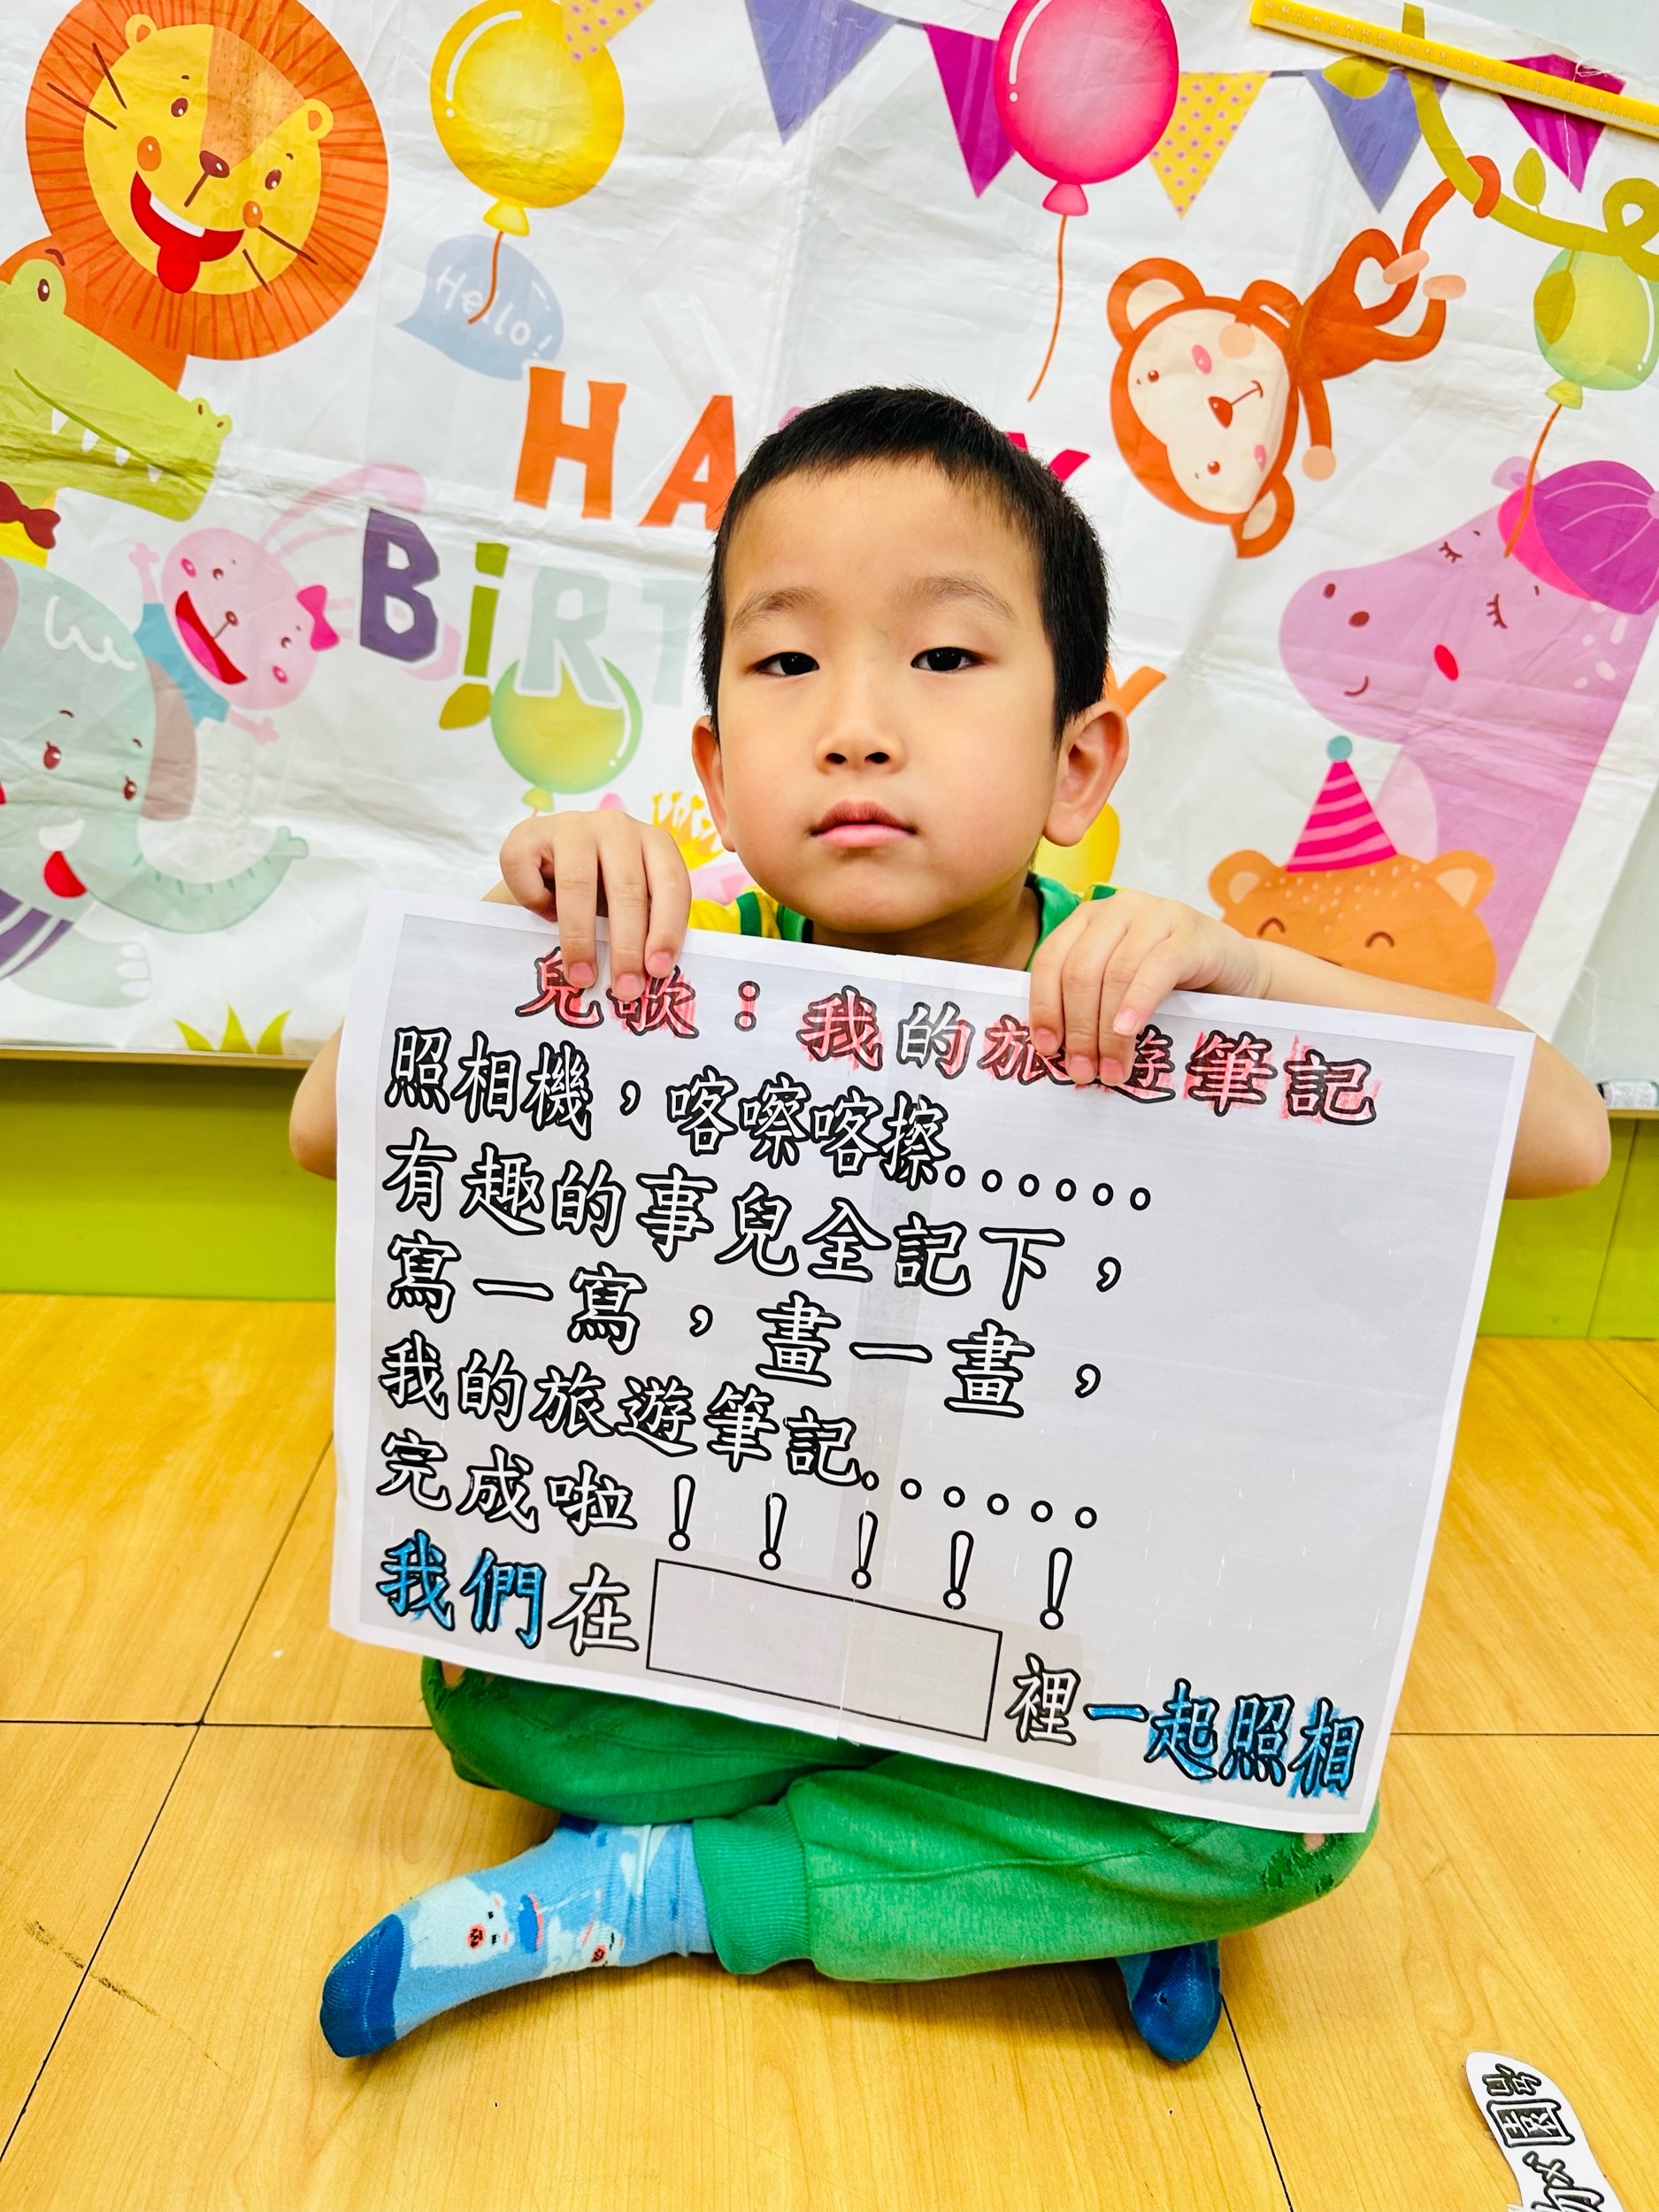 Hello!
HA
BiRT
Y
兒歌：我的旅遊筆記
照相機，喀嚓喀擦......
有趣的事兒全記下，
寫一寫，畫一畫，
我的旅遊筆記......
完成啦！！！！！
我們在 裡一起照相